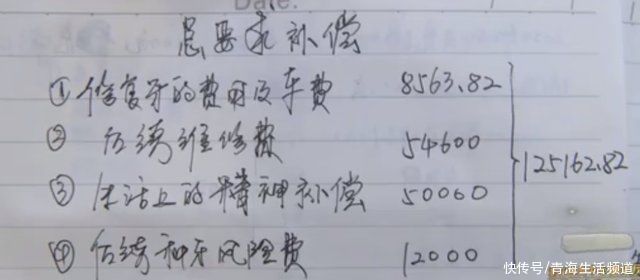 总要求补偿
①修复牙的费用及车费 8563.82
② 后续维修费 54600
③ 生活上的精神补偿 50000
④ 后续种牙风险费 12000
125162.82
快传号/青海生活频道